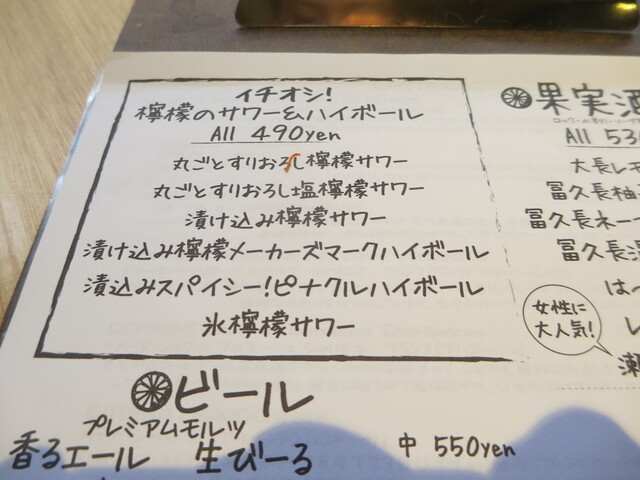 イチオシ!
檸檬のサワー&ハイボール
All 490yen
丸ごとすりおろし檸檬サワー
丸ごとすりおろし塩檸檬サワー
漬け込み檸檬サワー
漬け込み檸檬メーカーズマークハイボール
漬込みスパイシー!ピナクルハイボール
氷檸檬サワー
ビール
プレミアムモルツ
香るエール 生びーる 中 550yen
果実酒
All 53
大長レモ
冨久長柚
冨久長ネー
冨久長
はへ
レ
女性に
大人気!